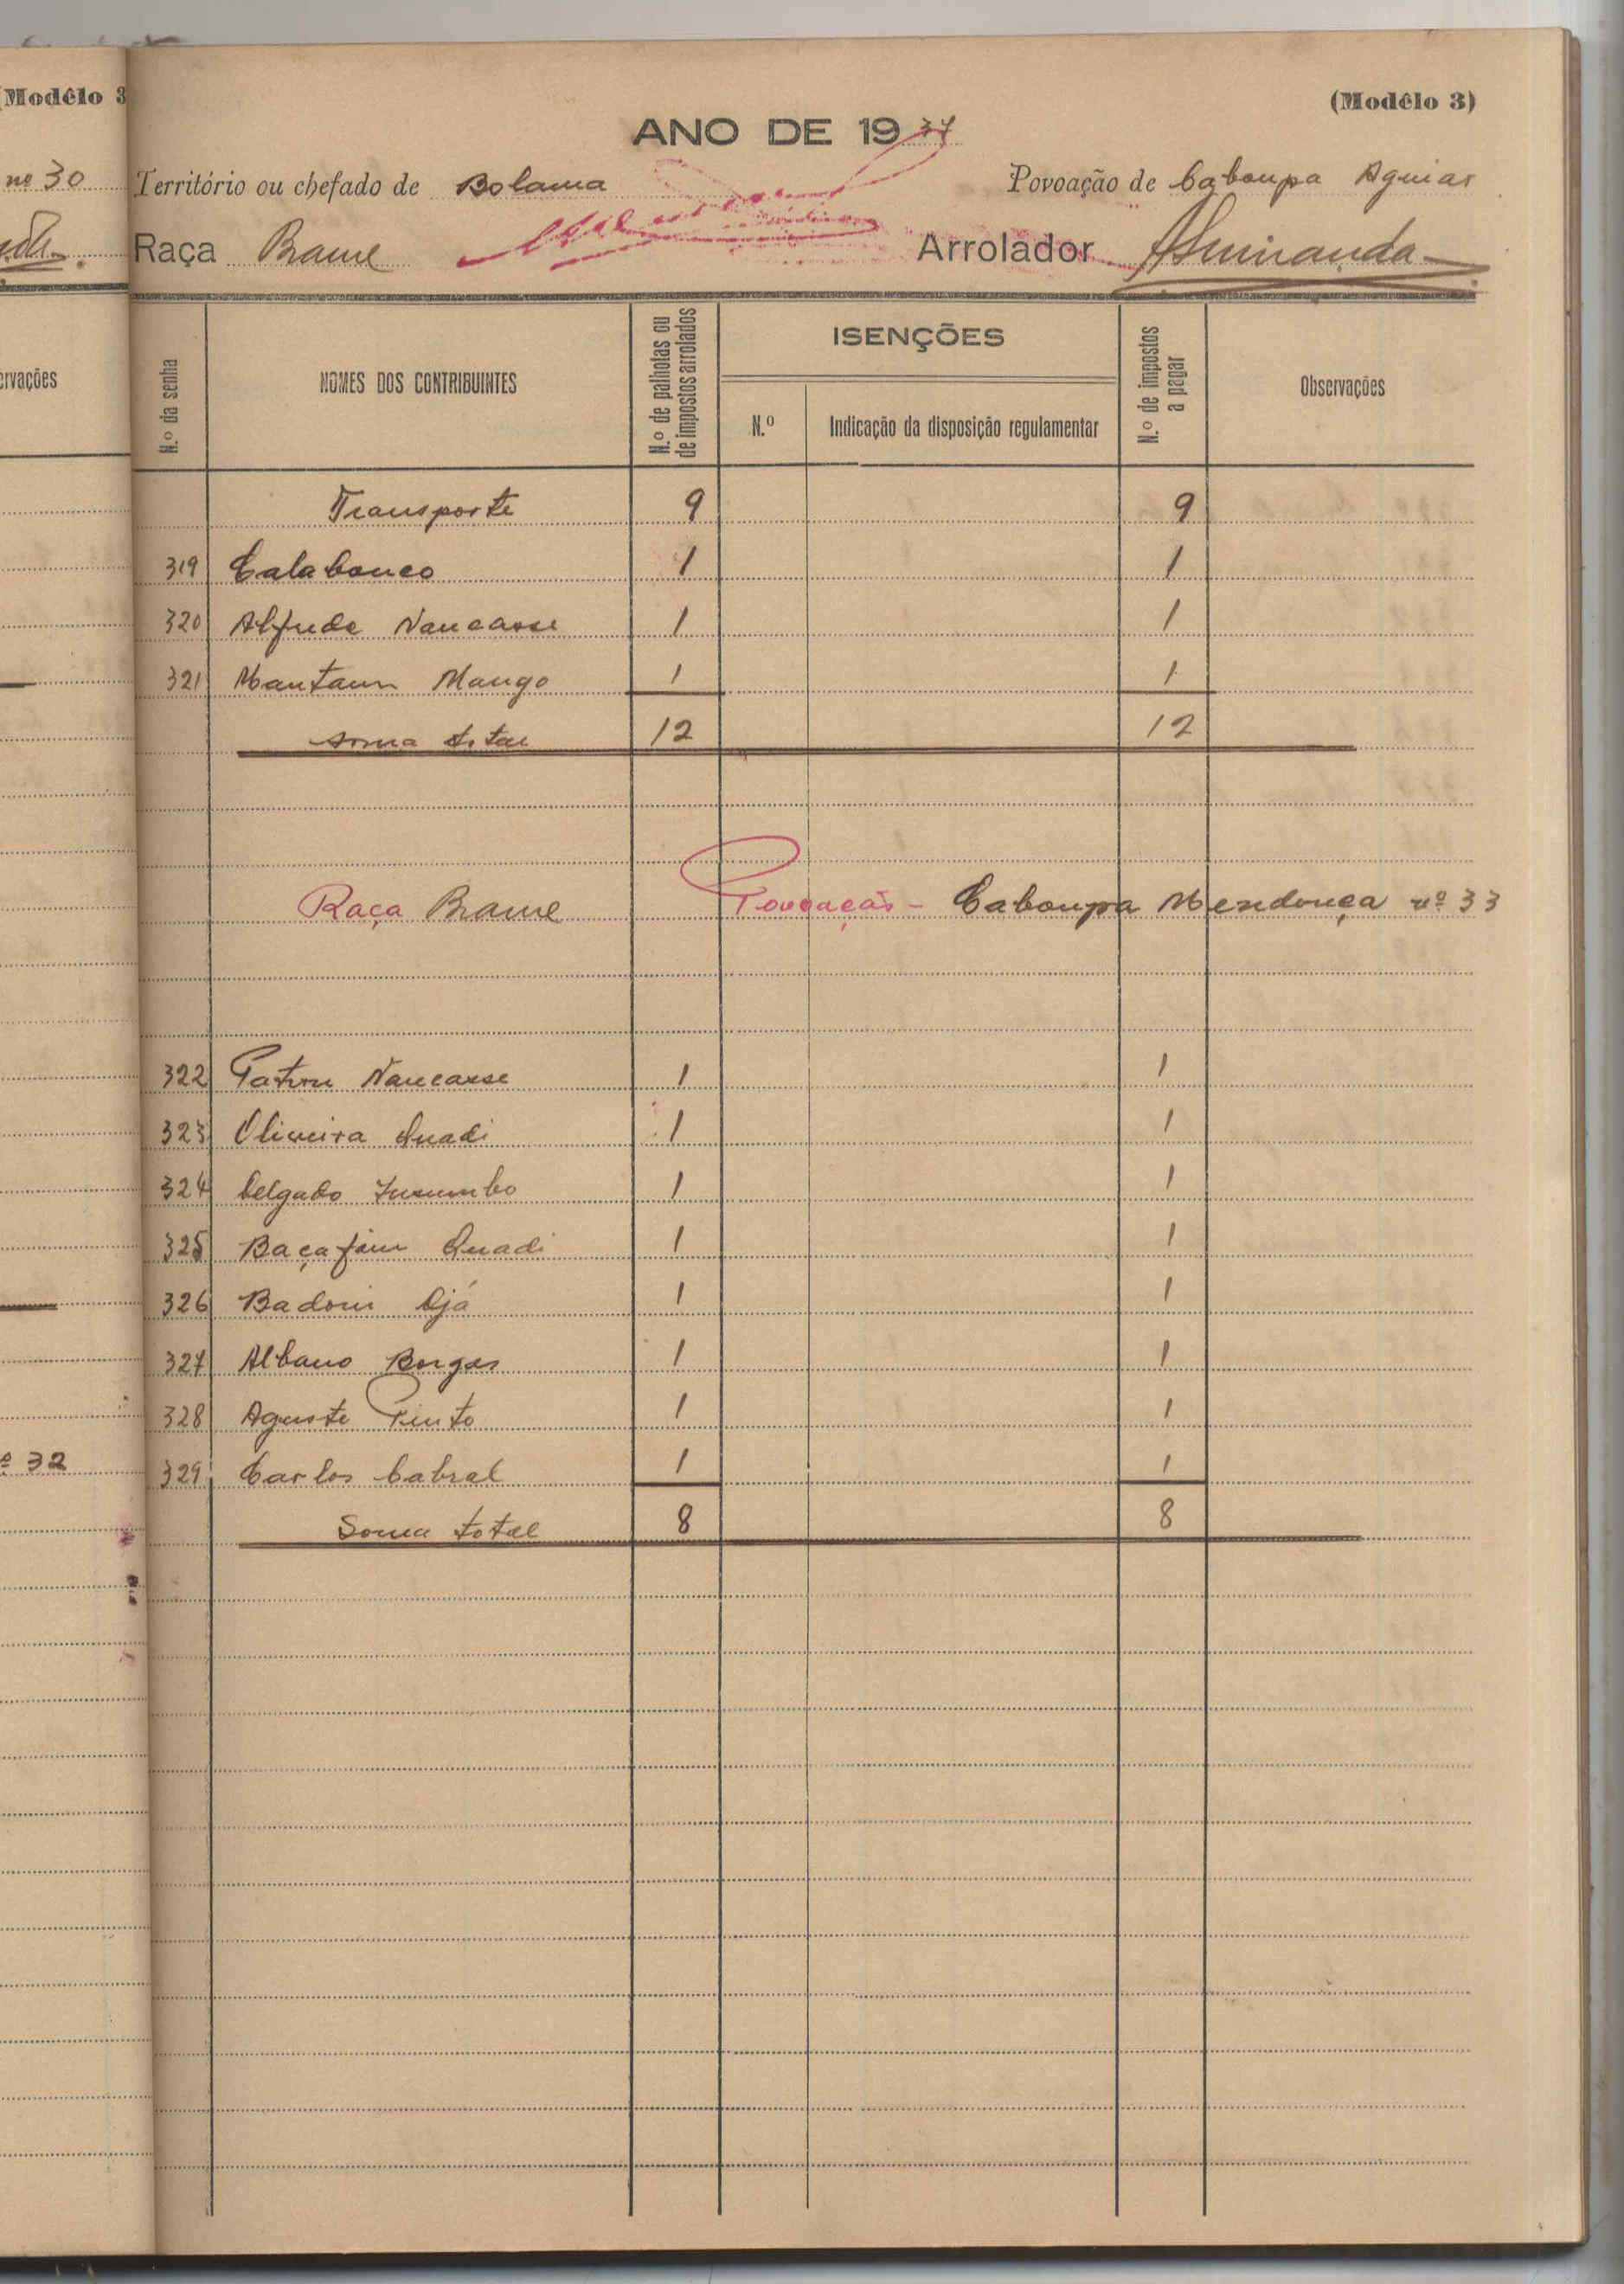 (Modêlo 3
nº 30
ervações
º 32
(Modêlo 3)
ANO DE 1937
Território ou chefado de Bolama Povoação de Caboupa Aguiar
Raça Brame Arrolador
N.º da senha NOMES DOS CONTRIBUINTES N.º de palhotas ou de impostos arrolados ISENÇÕES N.º de impostos a pagar Observações
N.º Indicação da disposição regulamentar
Transporte 9 9
319 Calabouco 1 1
320 Alfrede Nancasse 1 1
321 Mantam Mango 1 1
Soma total 12 12
Raça Brame Povoação - Caboupa Mendonça nº 33
322 Nancasse 1 1
323 Oliveira Quadi 1 1
324 Delgado 1 1
325 Baçafim Quadi 1 1
326 Badoni Djá 1 1
327 Albano Borges 1 1
328 Aguste Pinto 1 1
329 Carlos Cabral 1 1
Soma total 8 8